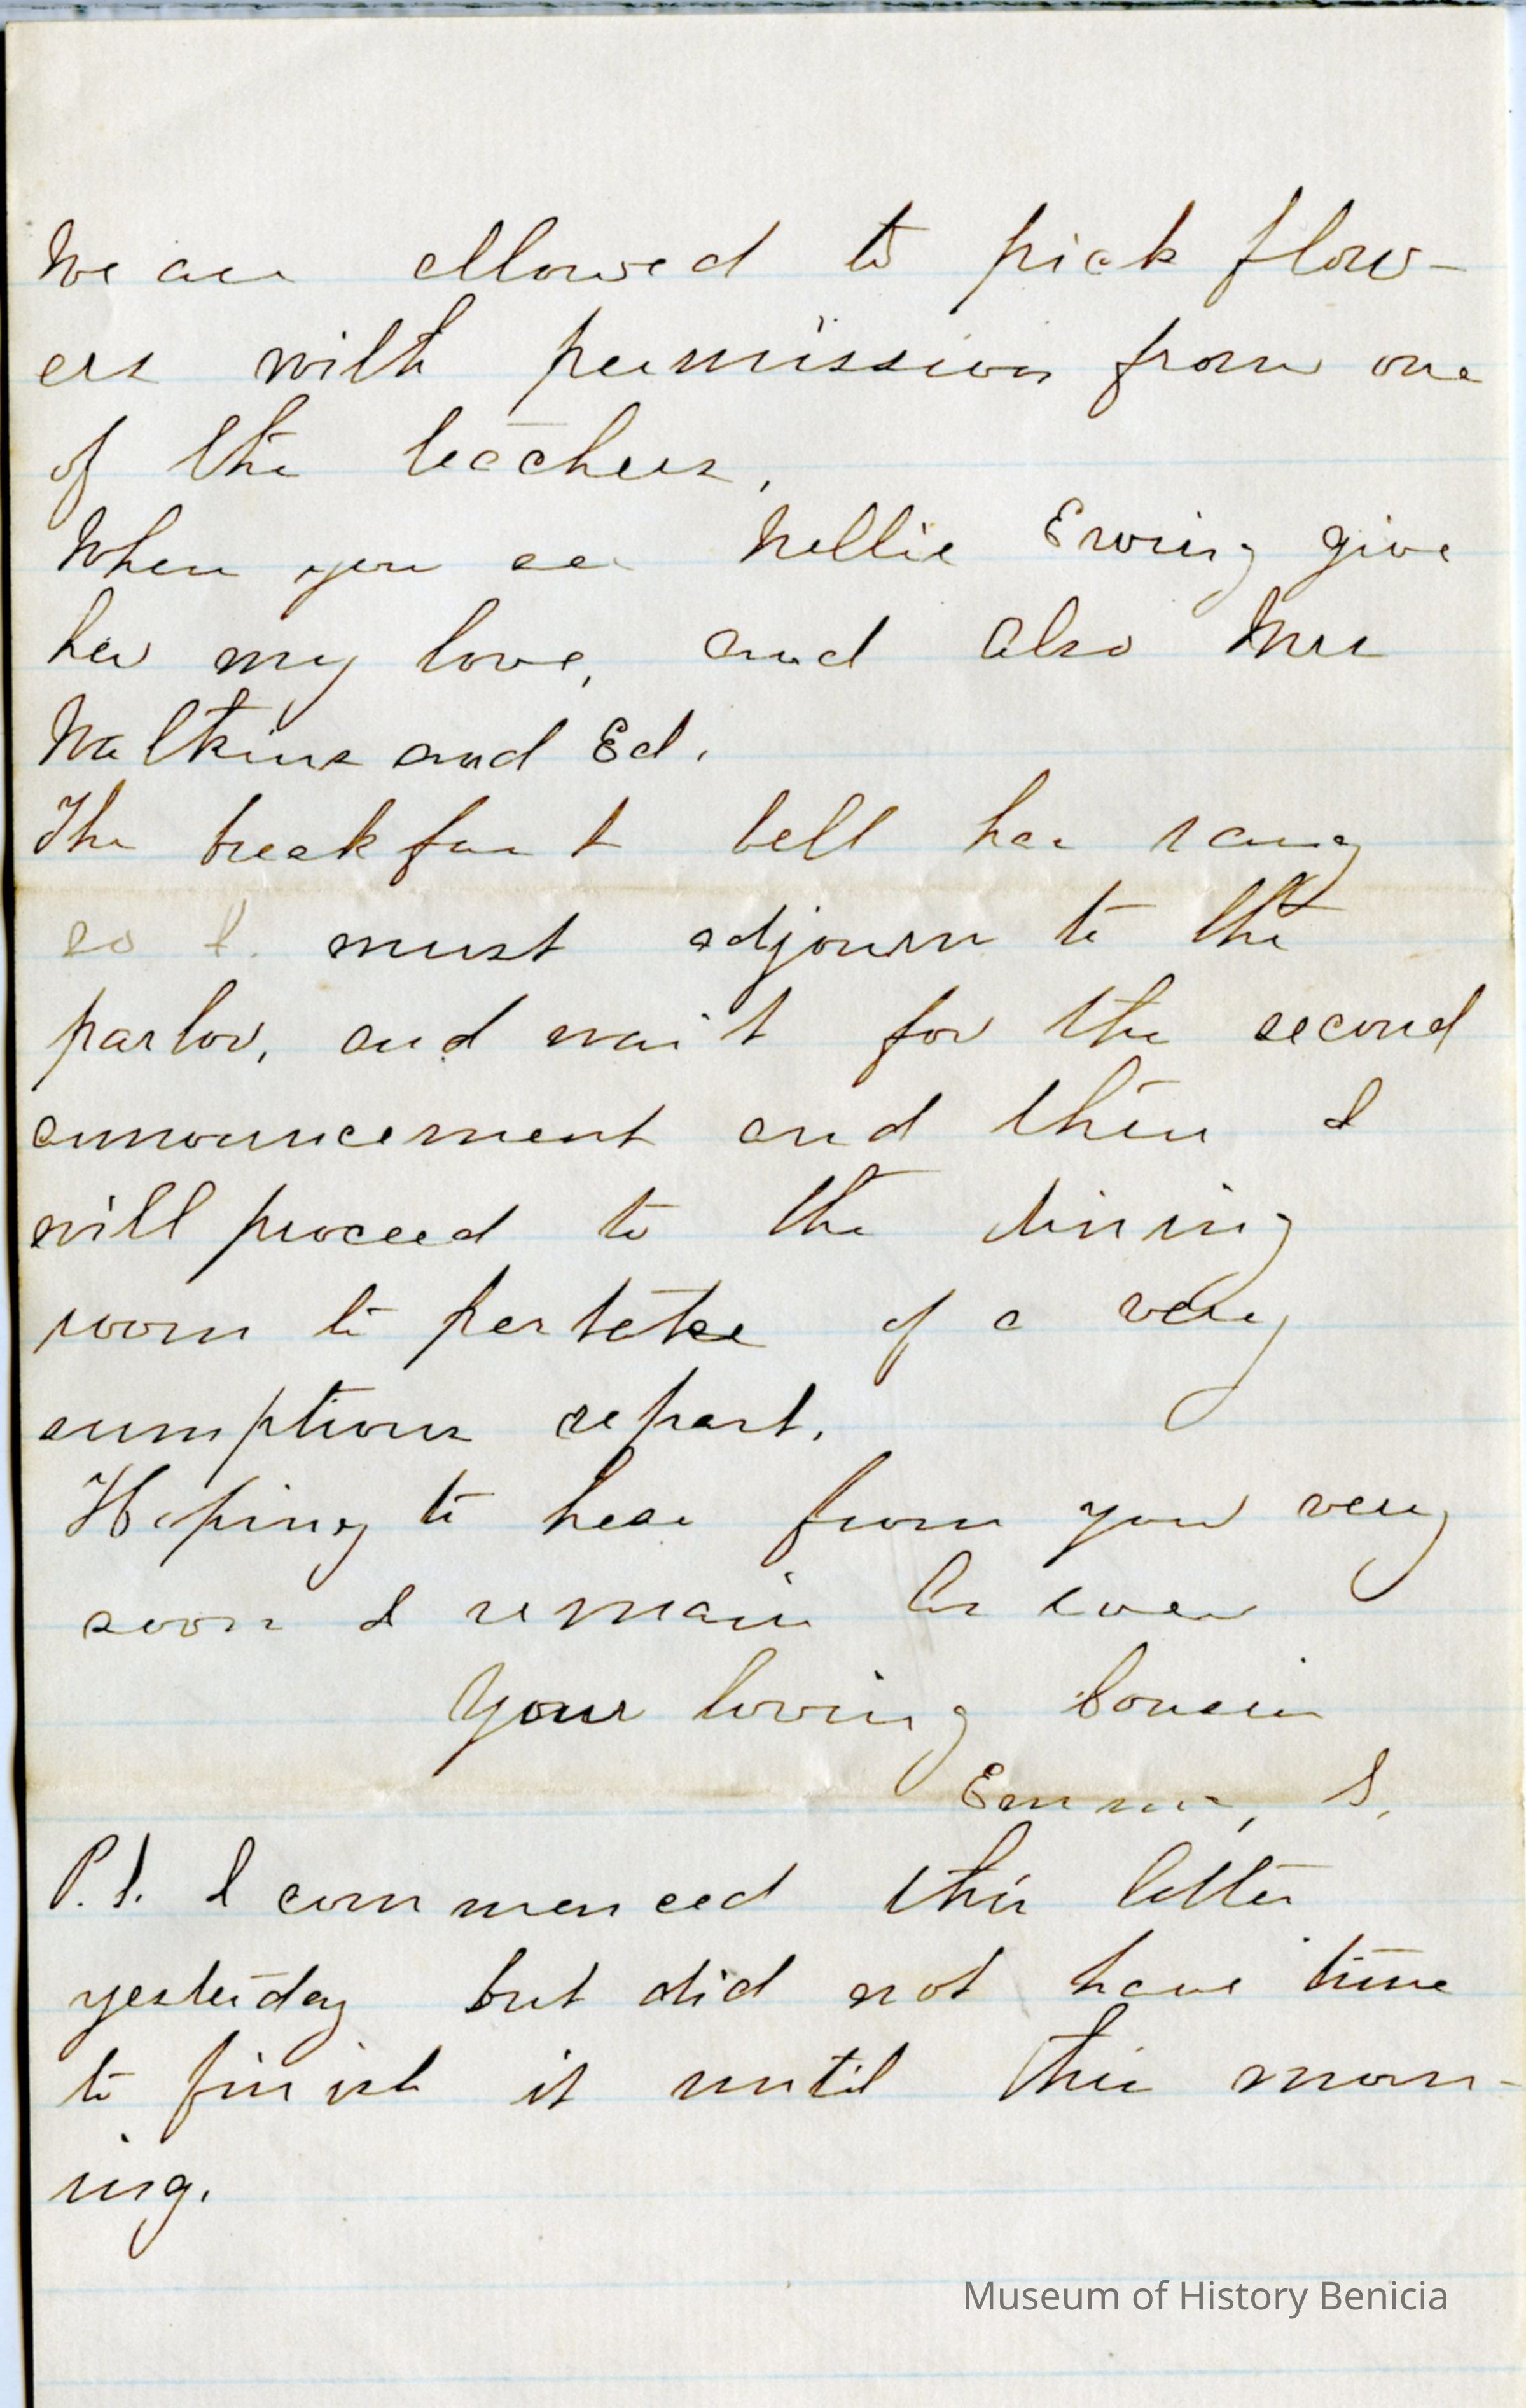 We are allowed to pick flow-
ers with permission from one
of the teachers,
When you see Nellie Ewing give
her my love, and also Mrs
Watkins and Ed.
The breakfast bell has rang
so I. must adjourn to the
parlor, and wait for the second
announcement and then I
will proceed to the dining
room to partake of a very
sumptious repast.
Hoping to hear from you very
soon I remain as ever
Your loving Cousin
Emma, S.
P.S. I commenced this letter
yesterday but did not have time
to finish it until this morn-
ing.
Museum of History Benicia